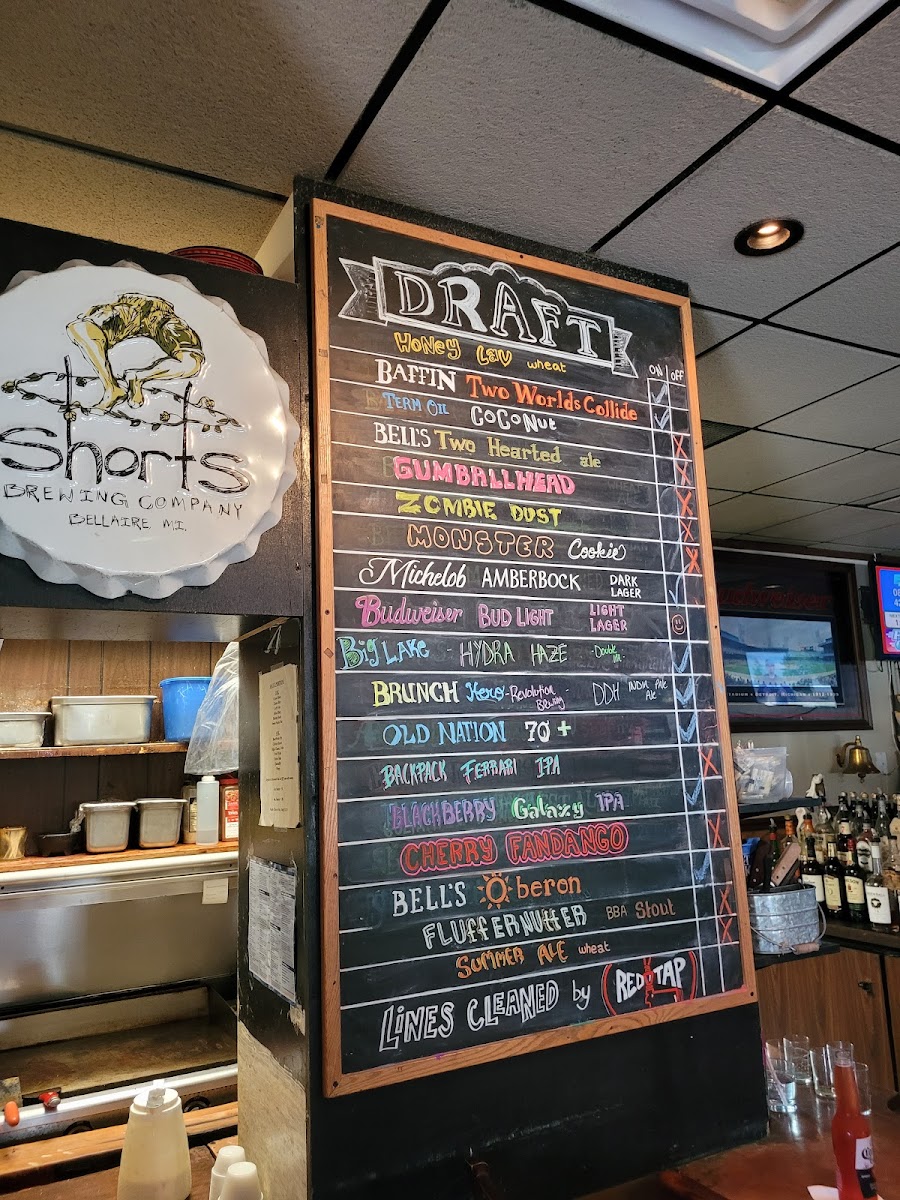 shorts
BREWING COMPANY
BELLAIRE MI.
DRAFT
ON OFF
HONEY LAV wheat
BAFFIN Two Worlds Collide
TERM OIL COCONUT
BELL'S Two Hearted ale
GUMBALLHEAD
ZOMBIE DUST
MONSTER Cookie
Michelob AMBERBOCK DARK LAGER
Budweiser BUD LIGHT LIGHT LAGER
Big LAKE - HYDRA HAZE - Double IPA
BRUNCH Hero - Revolution Brewing DDH INDIA Pale Ale
OLD NATION 70 +
BACKPACK FERRARI IPA
BLACHBERRY Galaxy IPA
CHERRY FANDANGO
BELL'S Oberon
FLUFFERNUTTER BBA Stout
SUMMER ALE wheat
LINES CLEANED by RED TAP